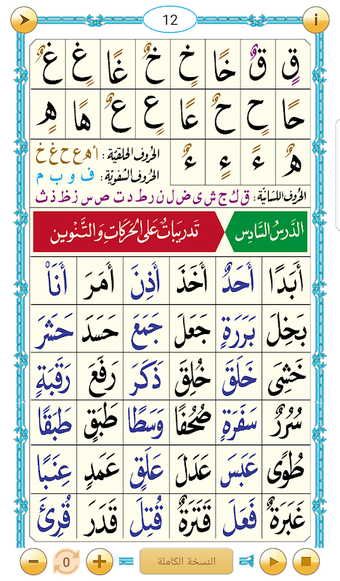 12
قٍ قٌ خًا خٍ خٌ غًا غٍ غٌ
حًا حٍ حٌ عًا عٍ عٌ هًا هٍ
هٌ ءً ءٍ ءٌ
الحُروف الحلقيّة : أ هـ ع ح غ خ
الحُروف الشفويّة : ف و ب م
الحُروف اللسانيّة: ق ك ج ش ي ض ل ن ر ط د ت ص س ز ظ ذ ث
الدَّرسُ السَّادِس تَدريبَاتٌ عَلى الحَرَكَاتِ وَالتَّنْوين
أَبَدًا أَحَدٌ أَخَذَ أَذِنَ أَمَرَ أَنَا
بَخِلَ بَرَرَةٍ جَعَلَ جَمَعَ حَسَدَ حَشَرَ
خَشِيَ خَلَقَ خُلِقَ ذَكَرَ رَفَعَ رَقَبَةٍ
سُرُرٌ سَفَرَةٍ صُحُفًا وَسَطًا طَبَقٍ طَبَقًا
طُوًى عَبَسَ عَدَلَ عَلَقٍ عَمَدٍ عِنَبًا
غَبَرَةٌ فَعَلَ قَتَرَةٌ قُتِلَ قَدَرَ قُرِئَ
0 النسخة الكاملة